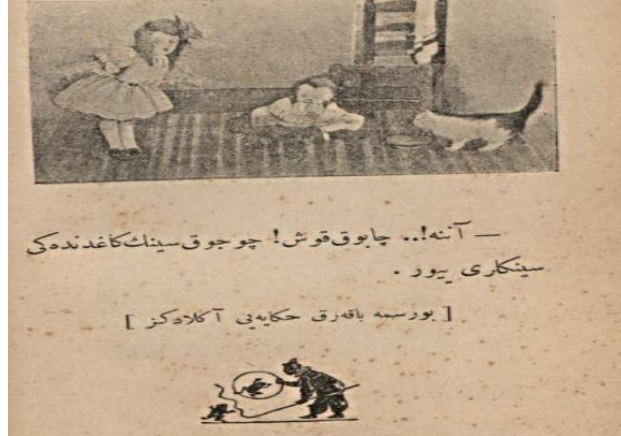 — آننه!.. چابوق قوش! چوجوق سينك كاغدنده كی
سينكلری ییور .
[ بو رسمه باقه رق حكایه یی آكلادكز ]